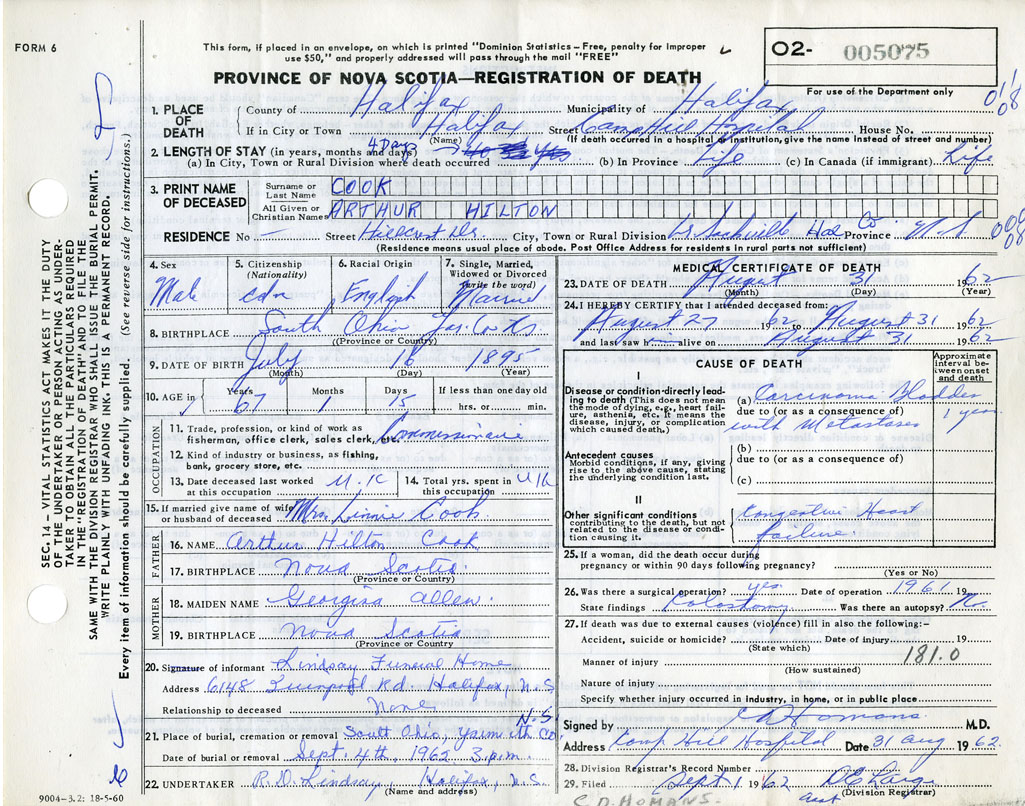 FORM 6
This form, if placed in an envelope, on which is printed "Dominion Statistics – Free, penalty for improper
use $50," and properly addressed will pass through the mail "FREE"
O2- 005075
PROVINCE OF NOVA SCOTIA—REGISTRATION OF DEATH
For use of the Department only
1. PLACE OF DEATH
County of Halifax Municipality of Halifax
If in City or Town Halifax Street Camp Hill Hospital House No.
(Name) (If death occurred in a hospital or institution, give the name instead of street and number)
2. LENGTH OF STAY (in years, months and days) 4 Days
(a) In City, Town or Rural Division where death occurred (b) In Province Life (c) In Canada (if immigrant) Life
3. PRINT NAME OF DECEASED
Surname or Last Name COOK
All Given or Christian Names ARTHUR HILTON
RESIDENCE No — Street Hillcrest Dr. City, Town or Rural Division Lr Sackville Hal Co Province N.S
(Residence means usual place of abode. Post Office Address for residents in rural parts not sufficient)
4. Sex
Male
5. Citizenship
(Nationality)
cdn
6. Racial Origin
English
7. Single, Married,
Widowed or Divorced
(write the word)
Married
8. BIRTHPLACE South Ohio Yar. Co N.S.
(Province or Country)
9. DATE OF BIRTH July 1895
(Month) (Day) (Year)
10. AGE in
Years 67 Months 1 Days 15
If less than one day old
hrs. or min.
OCCUPATION
11. Trade, profession, or kind of work as
fisherman, office clerk, sales clerk, etc. Commissionaire
12. Kind of industry or business, as fishing,
bank, grocery store, etc.
13. Date deceased last worked
at this occupation U.K
14. Total yrs. spent in
this occupation U.K
15. If married give name of wife
or husband of deceased Mrs. Linnie Cook
FATHER
16. NAME Arthur Hilton Cook
17. BIRTHPLACE Nova Scotia
(Province or Country)
MOTHER
18. MAIDEN NAME Georgina Allen
19. BIRTHPLACE Nova Scotia
(Province or Country)
20. Signature of informant Lindsay Funeral Home
Address 6148 Liverpool Rd. Halifax, N.S
Relationship to deceased None
21. Place of burial, cremation or removal South Ohio, Yarmouth Co. N.S.
Date of burial or removal Sept. 4th, 1962 3 p.m.
22. UNDERTAKER R.D. Lindsay, Halifax, N.S.
(Name and address)
9004-3.2: 18-5-60
MEDICAL CERTIFICATE OF DEATH
23. DATE OF DEATH August 31 1962
(Month) (Day) (Year)
24. I HEREBY CERTIFY that I attended deceased from:
August 27 1962 to August 31 1962
and last saw alive on August 31 1962
CAUSE OF DEATH
Approximate
interval between
onset
and death
I
Disease or condition directly leading
to death (This does not mean
the mode of dying, e.g., heart failure,
asthenia, etc. It means the
disease, injury, or complication
which caused death.)
(a) Carcinoma Bladder
due to (or as a consequence of) 1 year
with Metastases
Antecedent causes
Morbid conditions, if any, giving
rise to the above cause, stating
the underlying condition last.
(b)
due to (or as a consequence of)
(c)
II
Other significant conditions
contributing to the death, but not
related to the disease or condition
causing it.
Congestive Heart
failure
25. If a woman, did the death occur during
pregnancy or within 90 days following pregnancy?
(Yes or No)
26. Was there a surgical operation? yes Date of operation 1961 19
State findings Was there an autopsy? No.
27. If death was due to external causes (violence) fill in also the following:–
Accident, suicide or homicide? Date of injury 19
(State which)
Manner of injury 181.0
(How sustained)
Nature of injury
Specify whether injury occurred in industry, in home, or in public place
Signed by C D Homans M.D.
Address Camp Hill Hospital Date 31 Aug 1962
28. Division Registrar's Record Number
29. Filed Sept 1 1962
(Division Registrar)
C.D. HOMANS. asst
SEC. 14 – VITAL STATISTICS ACT MAKES IT THE DUTY
OF THE UNDERTAKER OR PERSON ACTING AS UNDERTAKER
TO OBTAIN ALL THE PARTICULARS REQUIRED
IN THE "REGISTRATION OF DEATH" AND TO FILE THE
SAME WITH THE DIVISION REGISTRAR WHO SHALL ISSUE THE BURIAL PERMIT.
WRITE PLAINLY WITH UNFADING INK. THIS IS A PERMANENT RECORD.
Every item of information should be carefully supplied. (See reverse side for instructions.)